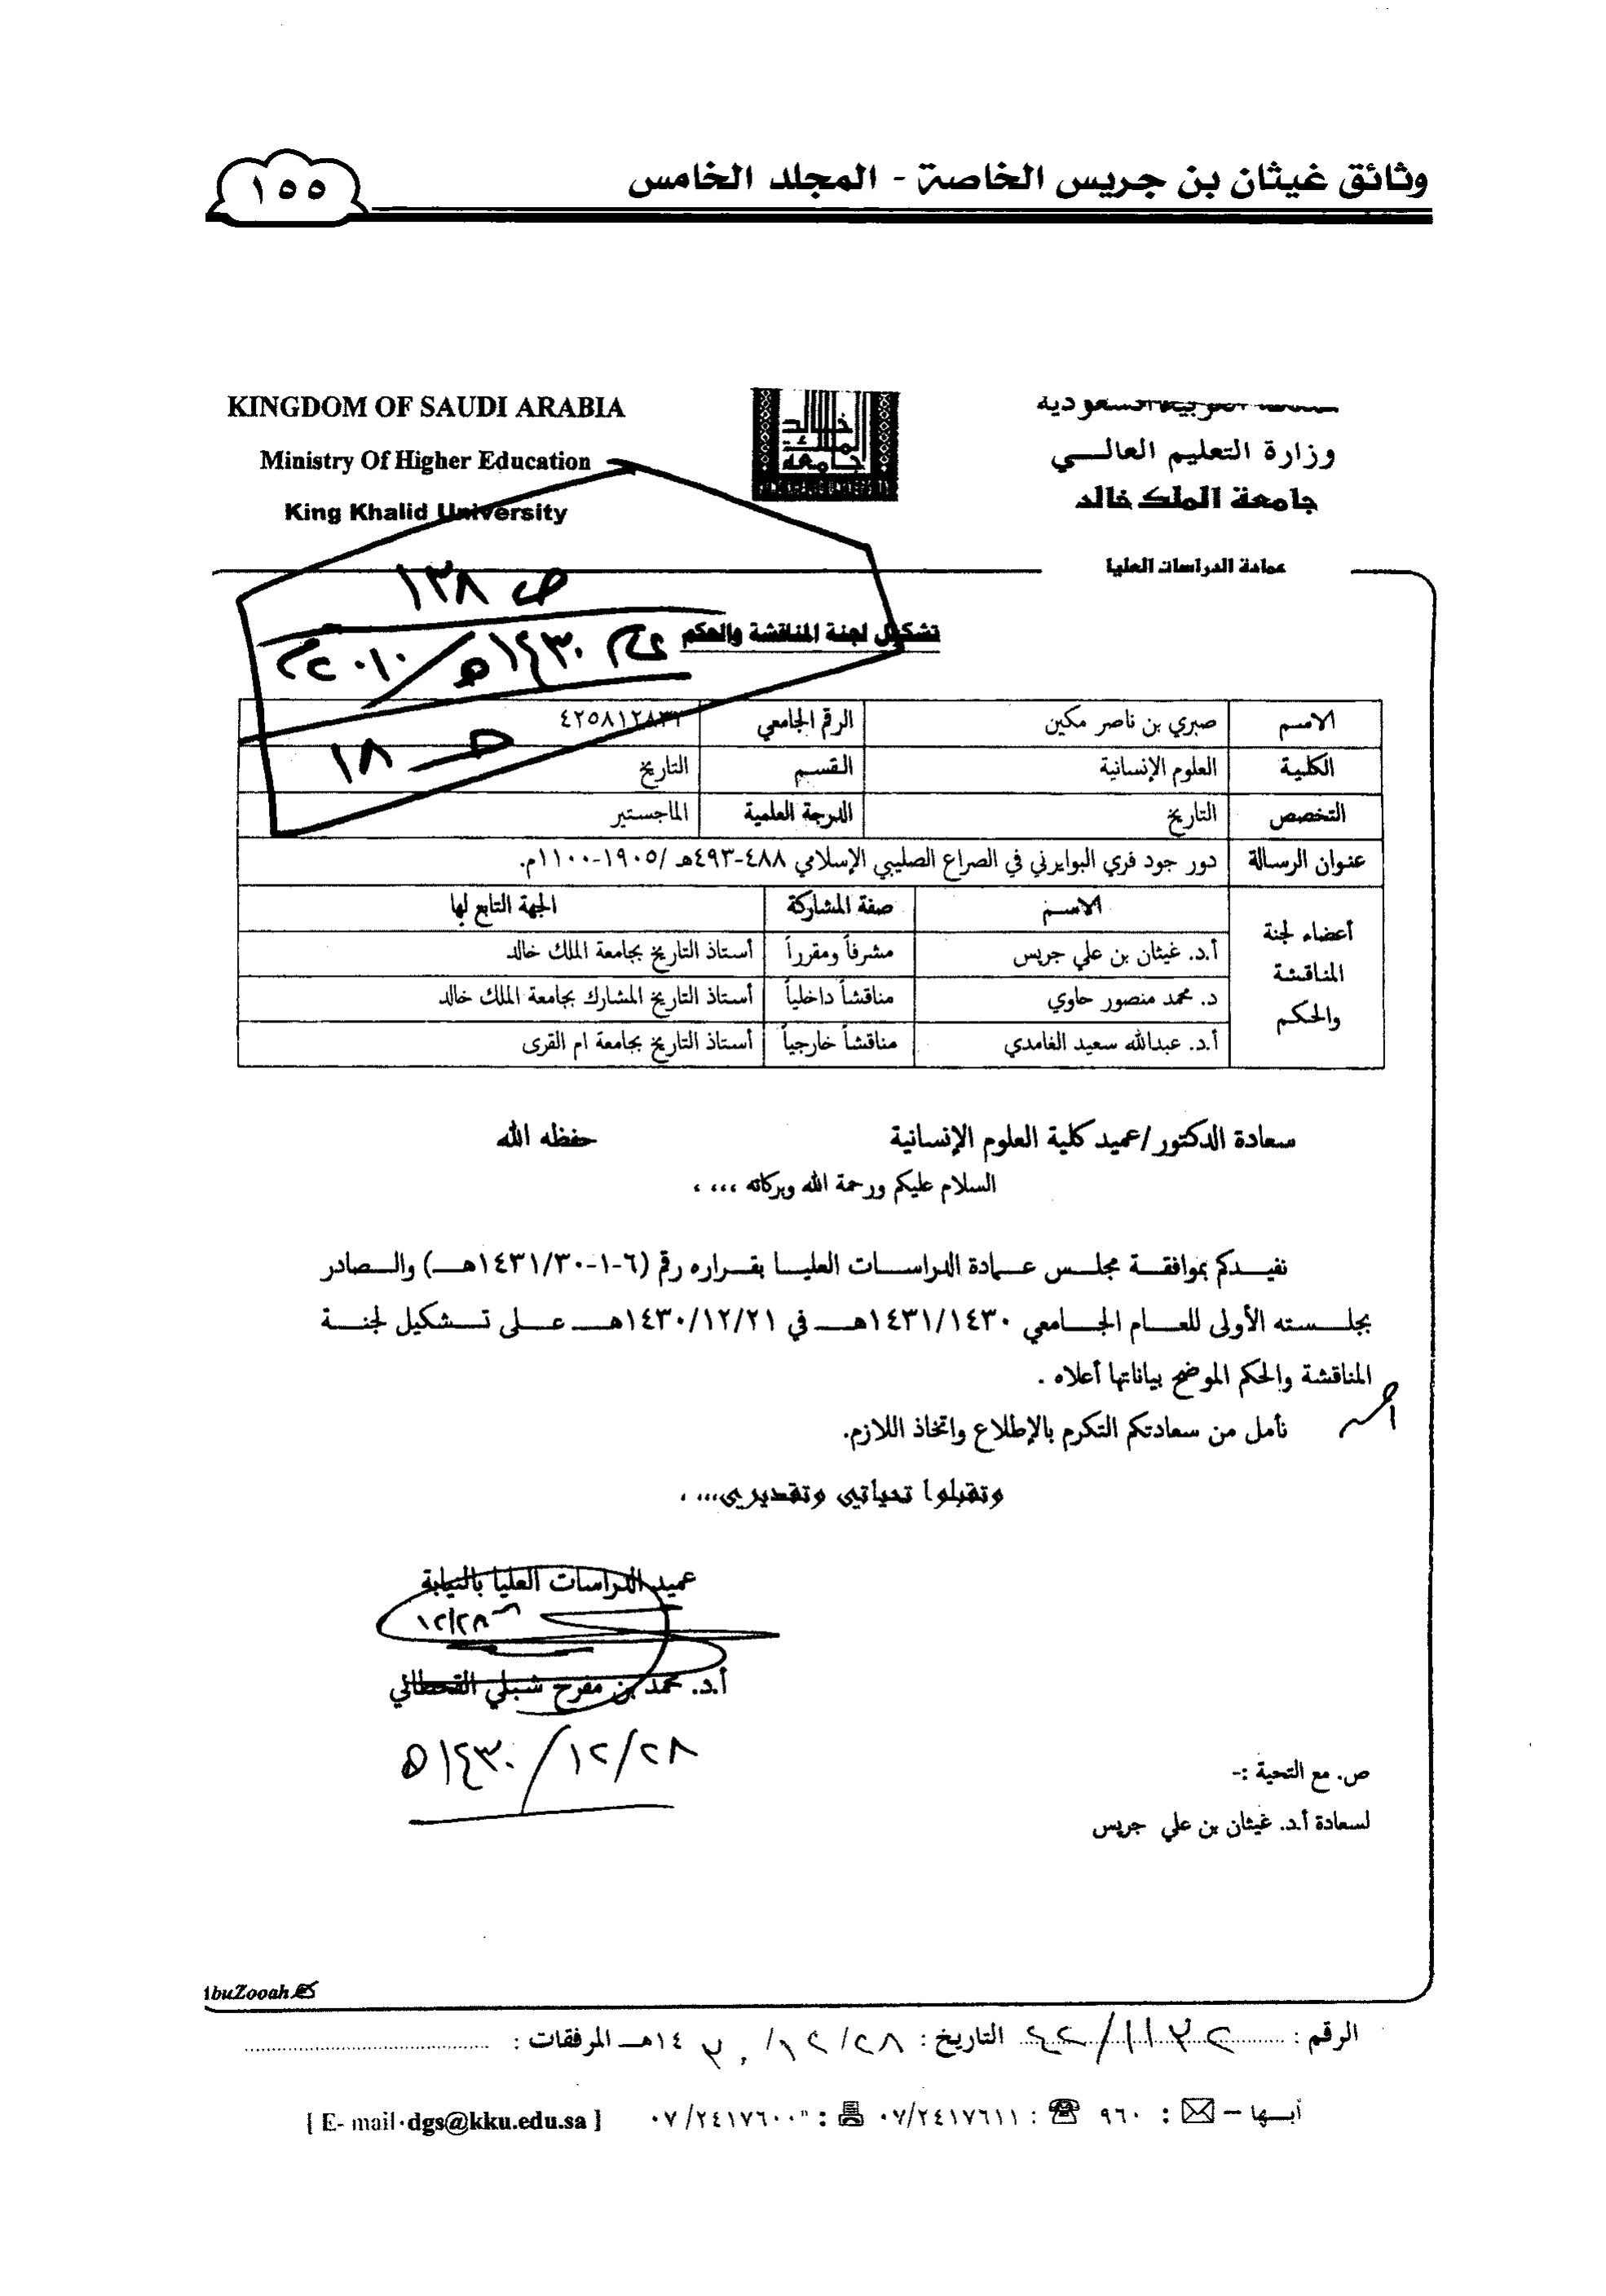 وثائق غيثان بن جريس الخاصة - المجلد الخامس
١٥٥
KINGDOM OF SAUDI ARABIA
Ministry Of Higher Education
وزارة التعليم العالـــي
King Khalid University
جامعة الملك خالد
جامعة الملك خالد
عمادة الدراسات العليا
ص ١٣٨
تشكيل لجنة المناقشة والحكم
١٤٣٠هـ / ٢٠١٠م
ص ١٨
الاسم صبري بن ناصر مكين الرقم الجامعي ٤٢٥٨١٢٨٣٢
الكلية العلوم الإنسانية القسم التاريخ
التخصص التاريخ الدرجة العلمية الماجستير
عنوان الرسالة دور جود فري البوايرني في الصراع الصليبي الإسلامي ٤٨٨-٤٩٣هـ /١٩٠٥-١١٠٠م.
أعضاء لجنة المناقشة والحكم
الاسم صفة المشاركة الجهة التابع لها
أ.د. غيثان بن علي جريس مشرفاً ومقرراً أستاذ التاريخ بجامعة الملك خالد
د. محمد منصور حاوي مناقشاً داخلياً أستاذ التاريخ المشارك بجامعة الملك خالد
أ.د. عبدالله سعيد الغامدي مناقشاً خارجياً أستاذ التاريخ بجامعة ام القرى
سعادة الدكتور/عميد كلية العلوم الإنسانية حفظه الله
السلام عليكم ورحمة الله وبركاته ،،، ،
نفيدكم بموافقة مجلس عمادة الدراسات العليا بقراره رقم (٦-١-١٤٣١/٣٠هـ) والصادر
بجلسته الأولى للعام الجامعي ١٤٣١/١٤٣٠هـ في ١٤٣٠/١٢/٢١هـ على تشكيل لجنة
المناقشة والحكم الموضح بياناتها أعلاه .
نأمل من سعادتكم التكرم بالإطلاع واتخاذ اللازم.
وتقبلوا تحياتي وتقديري،،، ،
عميد الدراسات العليا بالنيابة
١٢/٢٨
أ.د. محمد بن مفرح شبلي القحطاني
١٤٣٠/١٢/٢٨هـ
ص. مع التحية :-
لسعادة أ.د. غيثان بن علي جريس
الرقم : التاريخ : ٢٨/١٢/١٤٣٠هـ المرفقات :
أبــها – ✉ : ٩٦٠ ☎ : ٠٧/٢٤١٧٦١١ : ٠٧/٢٤١٧٦٠٠ [ E- mail·dgs@kku.edu.sa ]